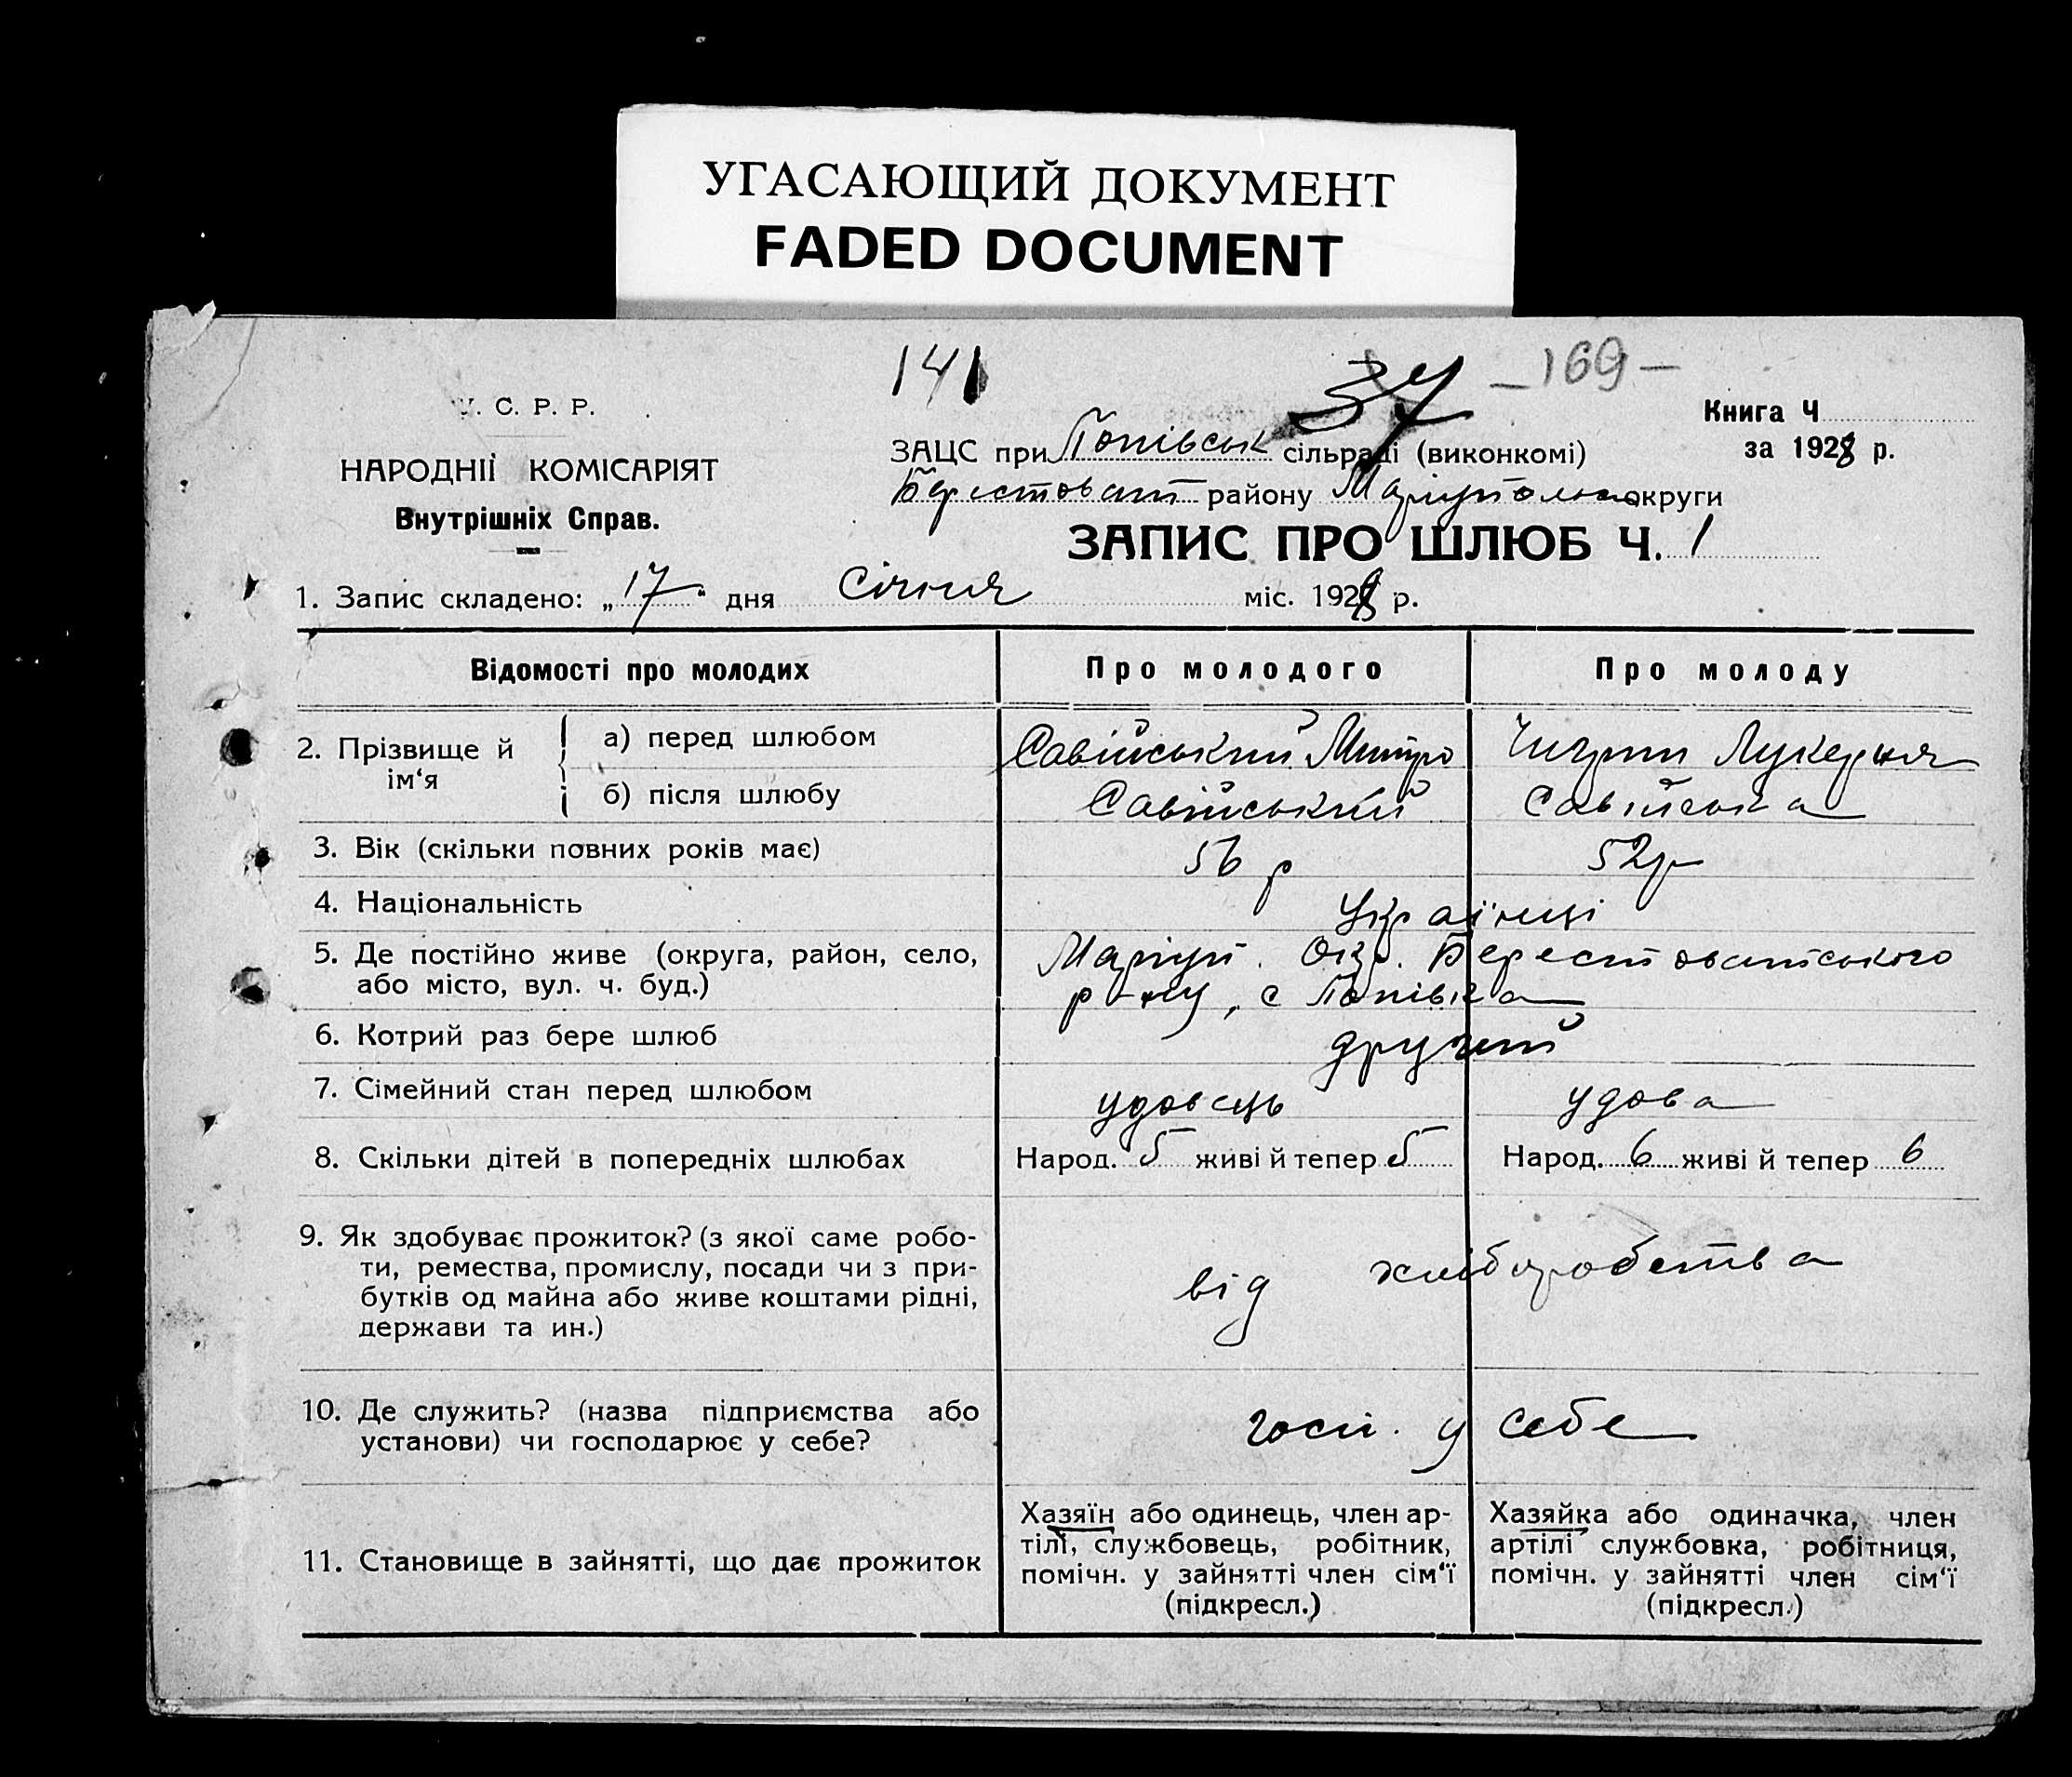 УГАСАЮЩИЙ ДОКУМЕНТ
FADED DOCUMENT
141 37 –169–
У. С. Р. Р.
НАРОДНІЇ КОМІСАРІЯТ
Внутрішніх Справ.
Книга Ч
за 1928 р.
ЗАЦС при Попівськ сільраді (виконкомі)
Берестоват районy Маріупольськ округи
ЗАПИС ПРО ШЛЮБ Ч. 1
1. Запис складено: „17“ дня Січня міс. 1928 р.
Відомості про молодих Про молодого Про молоду
2. Прізвище й ім‘я
а) перед шлюбом Савійський Митро Лукерия
б) після шлюбу Савійський Савійська
3. Вік (скільки повних років має) 56 р 52 р
4. Національність Українці
5. Де постійно живе (округа, район, село, Маріуп. Окр. Берестоватського
або місто, вул. ч. буд.) р-ну, с Попівка
6. Котрий раз бере шлюб другий
7. Сімейний стан перед шлюбом удовець удова
8. Скільки дітей в попередніх шлюбах Народ. 5 живі й тепер 5 Народ. 6 живі й тепер 6
9. Як здобуває прожиток? (з якої саме робо-
ти, ремества, промислу, посади чи з при-
бутків од майна або живе коштами рідні,
держави та ин.)
від хліборобства
10. Де служить? (назва підприємства або
установи) чи господарює у себе?
госп. у себе
11. Становище в зайнятті, що дає прожиток
Хазяїн або одинець, член ар-
тілі, службовець, робітник,
помічн. у зайнятті член сім‘ї
(підкресл.)
Хазяйка або одиначка, член
артілі службовка, робітниця,
помічн. у зайнятті член сім‘ї
(підкресл.)